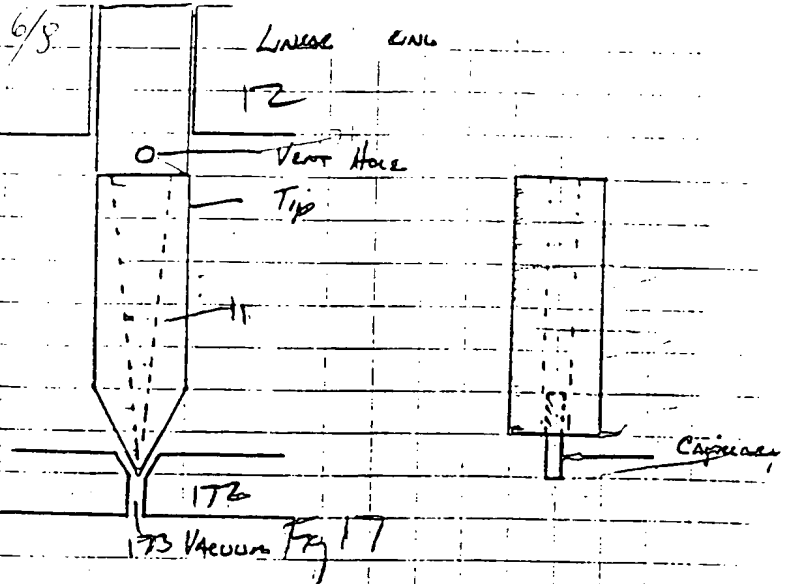 6/8
LINEAR RING
12
VENT HOLE
TIP
11
CAPILLARY
172
173 VACUUM Fig 17